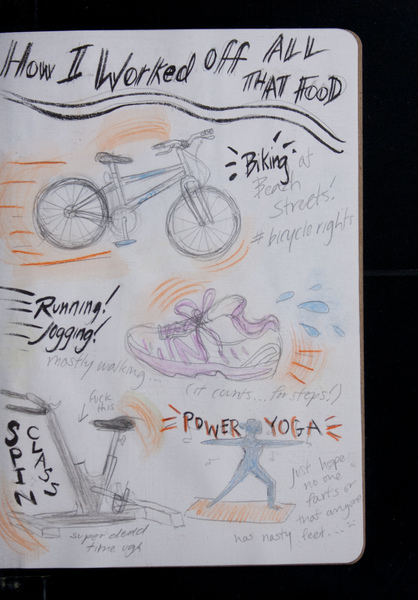 How I Worked off ALL
THAT FOOD
Biking at
Beach
Streets!
#bicyclerights
Running!
Jogging!
mostly walking...
(it counts... for steps!)
fuck
this
SPIN
CLASS
super dead
time ugh
POWER YOGA
Just hope
no one
farts or
that anyone
has nasty feet...